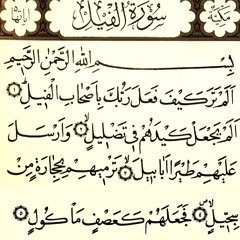 مكية سورة الفيل آياتها ٥
بِسْمِ اللهِ الرَّحْمٰنِ الرَّحِيمِ
اَلَمْ تَرَ كَيْفَ فَعَلَ رَبُّكَ بِاَصْحَابِ الْفِيلِ ۝١
اَلَمْ يَجْعَلْ كَيْدَهُمْ فِى تَضْلِيلٍ ۝٢ وَاَرْسَلَ
عَلَيْهِمْ طَيْرًا اَبَابِيلَ ۝٣ تَرْمِيهِمْ بِحِجَارَةٍ مِنْ
سِجِّيلٍ ۝٤ فَجَعَلَهُمْ كَعَصْفٍ مَاْكُولٍ ۝٥